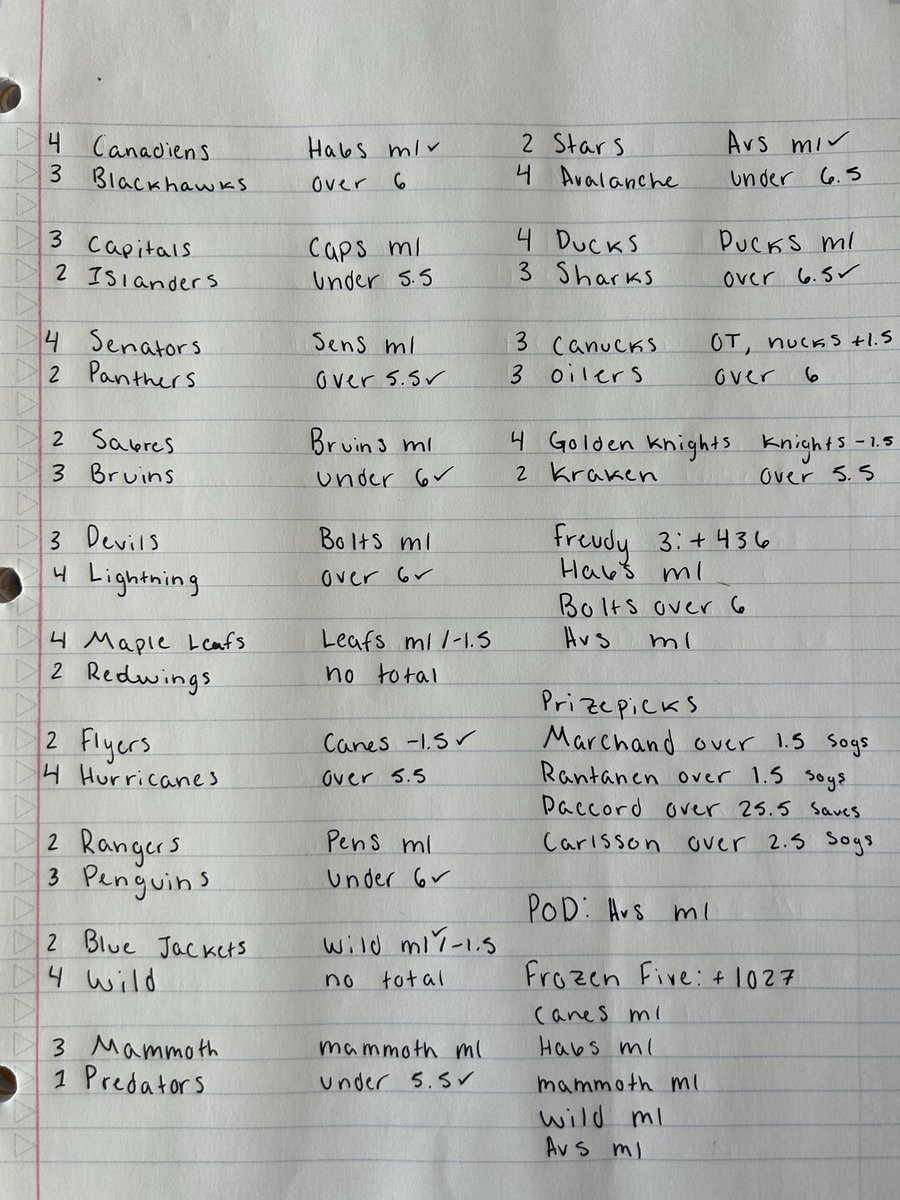 4 Canadiens Habs ml✓
3 Blackhawks over 6
3 Capitals Caps ml
2 Islanders under 5.5
4 Senators Sens ml
2 Panthers over 5.5✓
2 Sabres Bruins ml
3 Bruins under 6✓
3 Devils Bolts ml
4 Lightning over 6✓
4 Maple Leafs Leafs ml/-1.5
2 Redwings no total
2 Flyers Canes -1.5✓
4 Hurricanes over 5.5
2 Rangers Pens ml
3 Penguins under 6✓
2 Blue Jackets Wild ml✓/-1.5
4 Wild no total
3 Mammoth mammoth ml
1 Predators under 5.5✓
2 Stars Avs ml✓
4 Avalanche under 6.5
4 Ducks Ducks ml
3 Sharks over 6.5✓
3 Canucks OT, nucks +1.5
3 Oilers over 6
4 Golden Knights Knights -1.5
2 Kraken over 5.5
Freudy 3: +436
Habs ml
Bolts over 6
Avs ml
Prizepicks
Marchand over 1.5 Sogs
Rantanen over 1.5 Sogs
Daccord over 25.5 Saves
Carlsson over 2.5 Sogs
POD: Avs ml
Frozen Five: +1027
Canes ml
Habs ml
mammoth ml
Wild ml
Avs ml